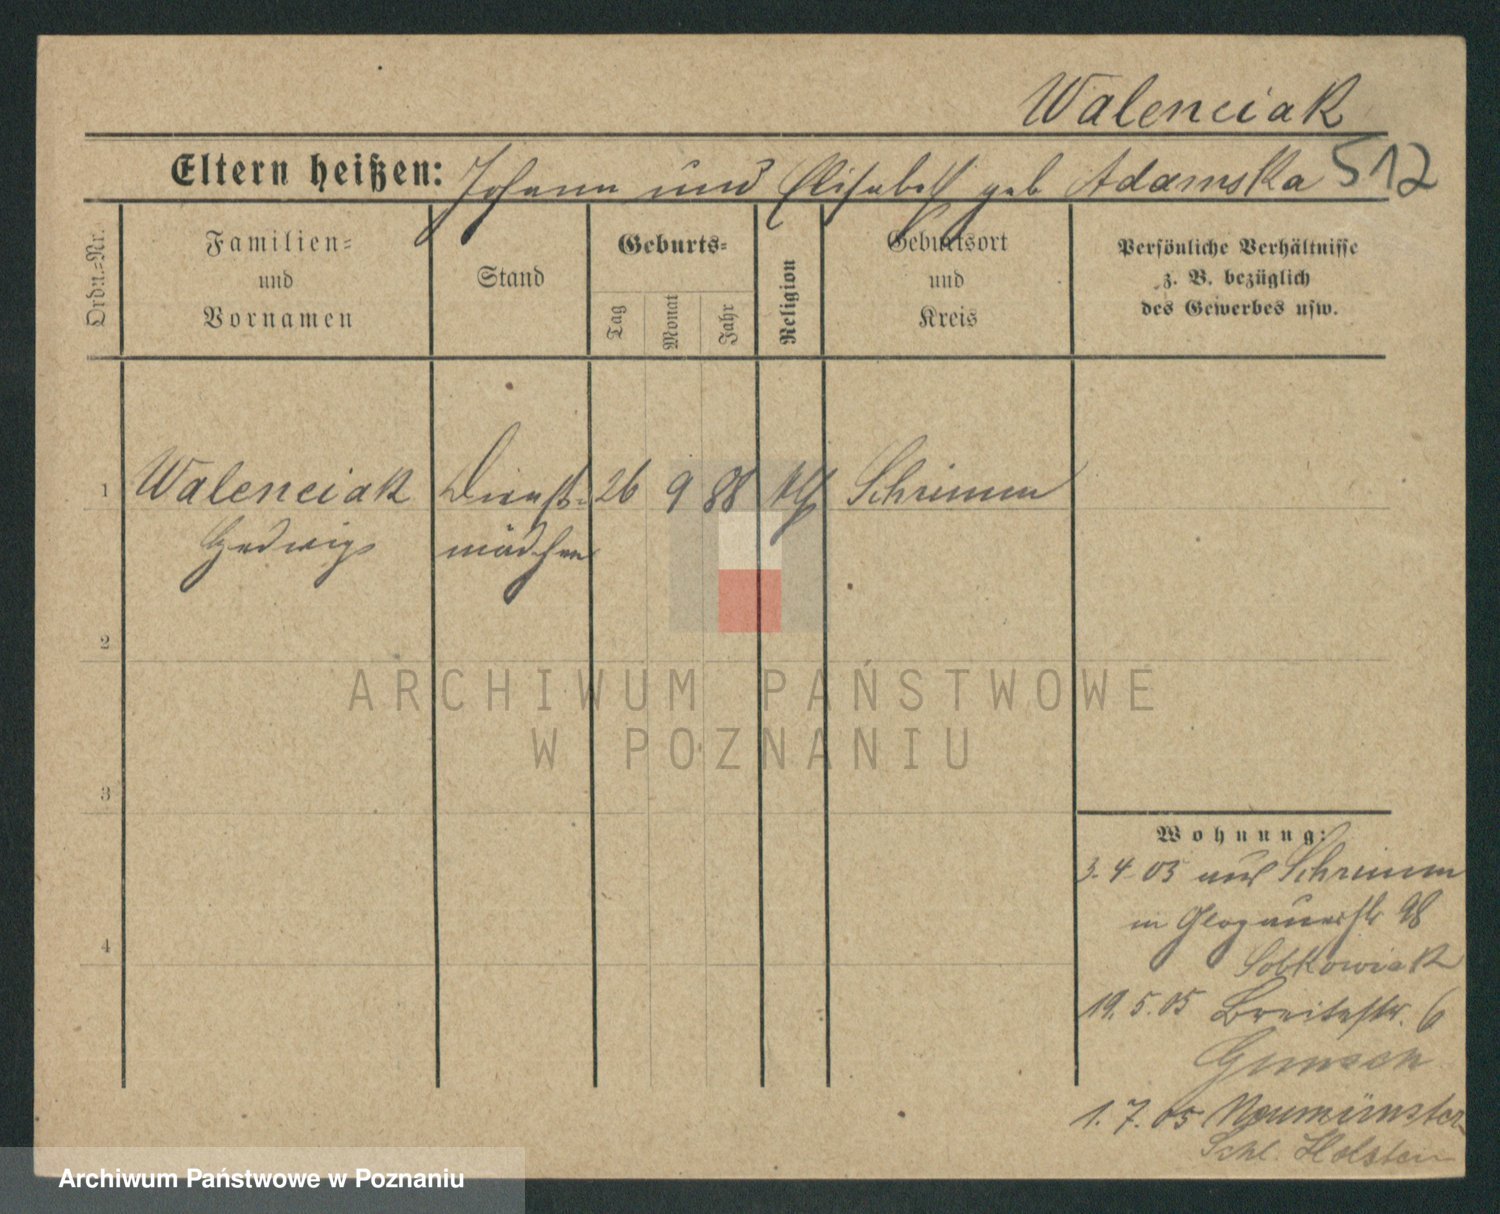 Walenciak
Eltern heißen: Johann und Elisabeth geb Adamska 512
Ordn.=Nr.
Familien=
und
Vornamen
Stand
Geburts=
Tag
Monat
Jahr
Religion
Geburtsort
und
Kreis
Persönliche Verhältnisse
z. B. bezüglich
des Gewerbes usw.
1 Walenciak Dienst= 26 9 88 kth Schrimm
Hedwig mädchen
2
ARCHIWUM PAŃSTWOWE
W POZNANIU
3
Wohnung:
3.4.05 aus Schrimm
in Glogauerstr 98
4
Sobkowiak
19.5.05 Breitestr. 6
1.7.05 Neumünster
Schl. Holstein
Archiwum Państwowe w Poznaniu